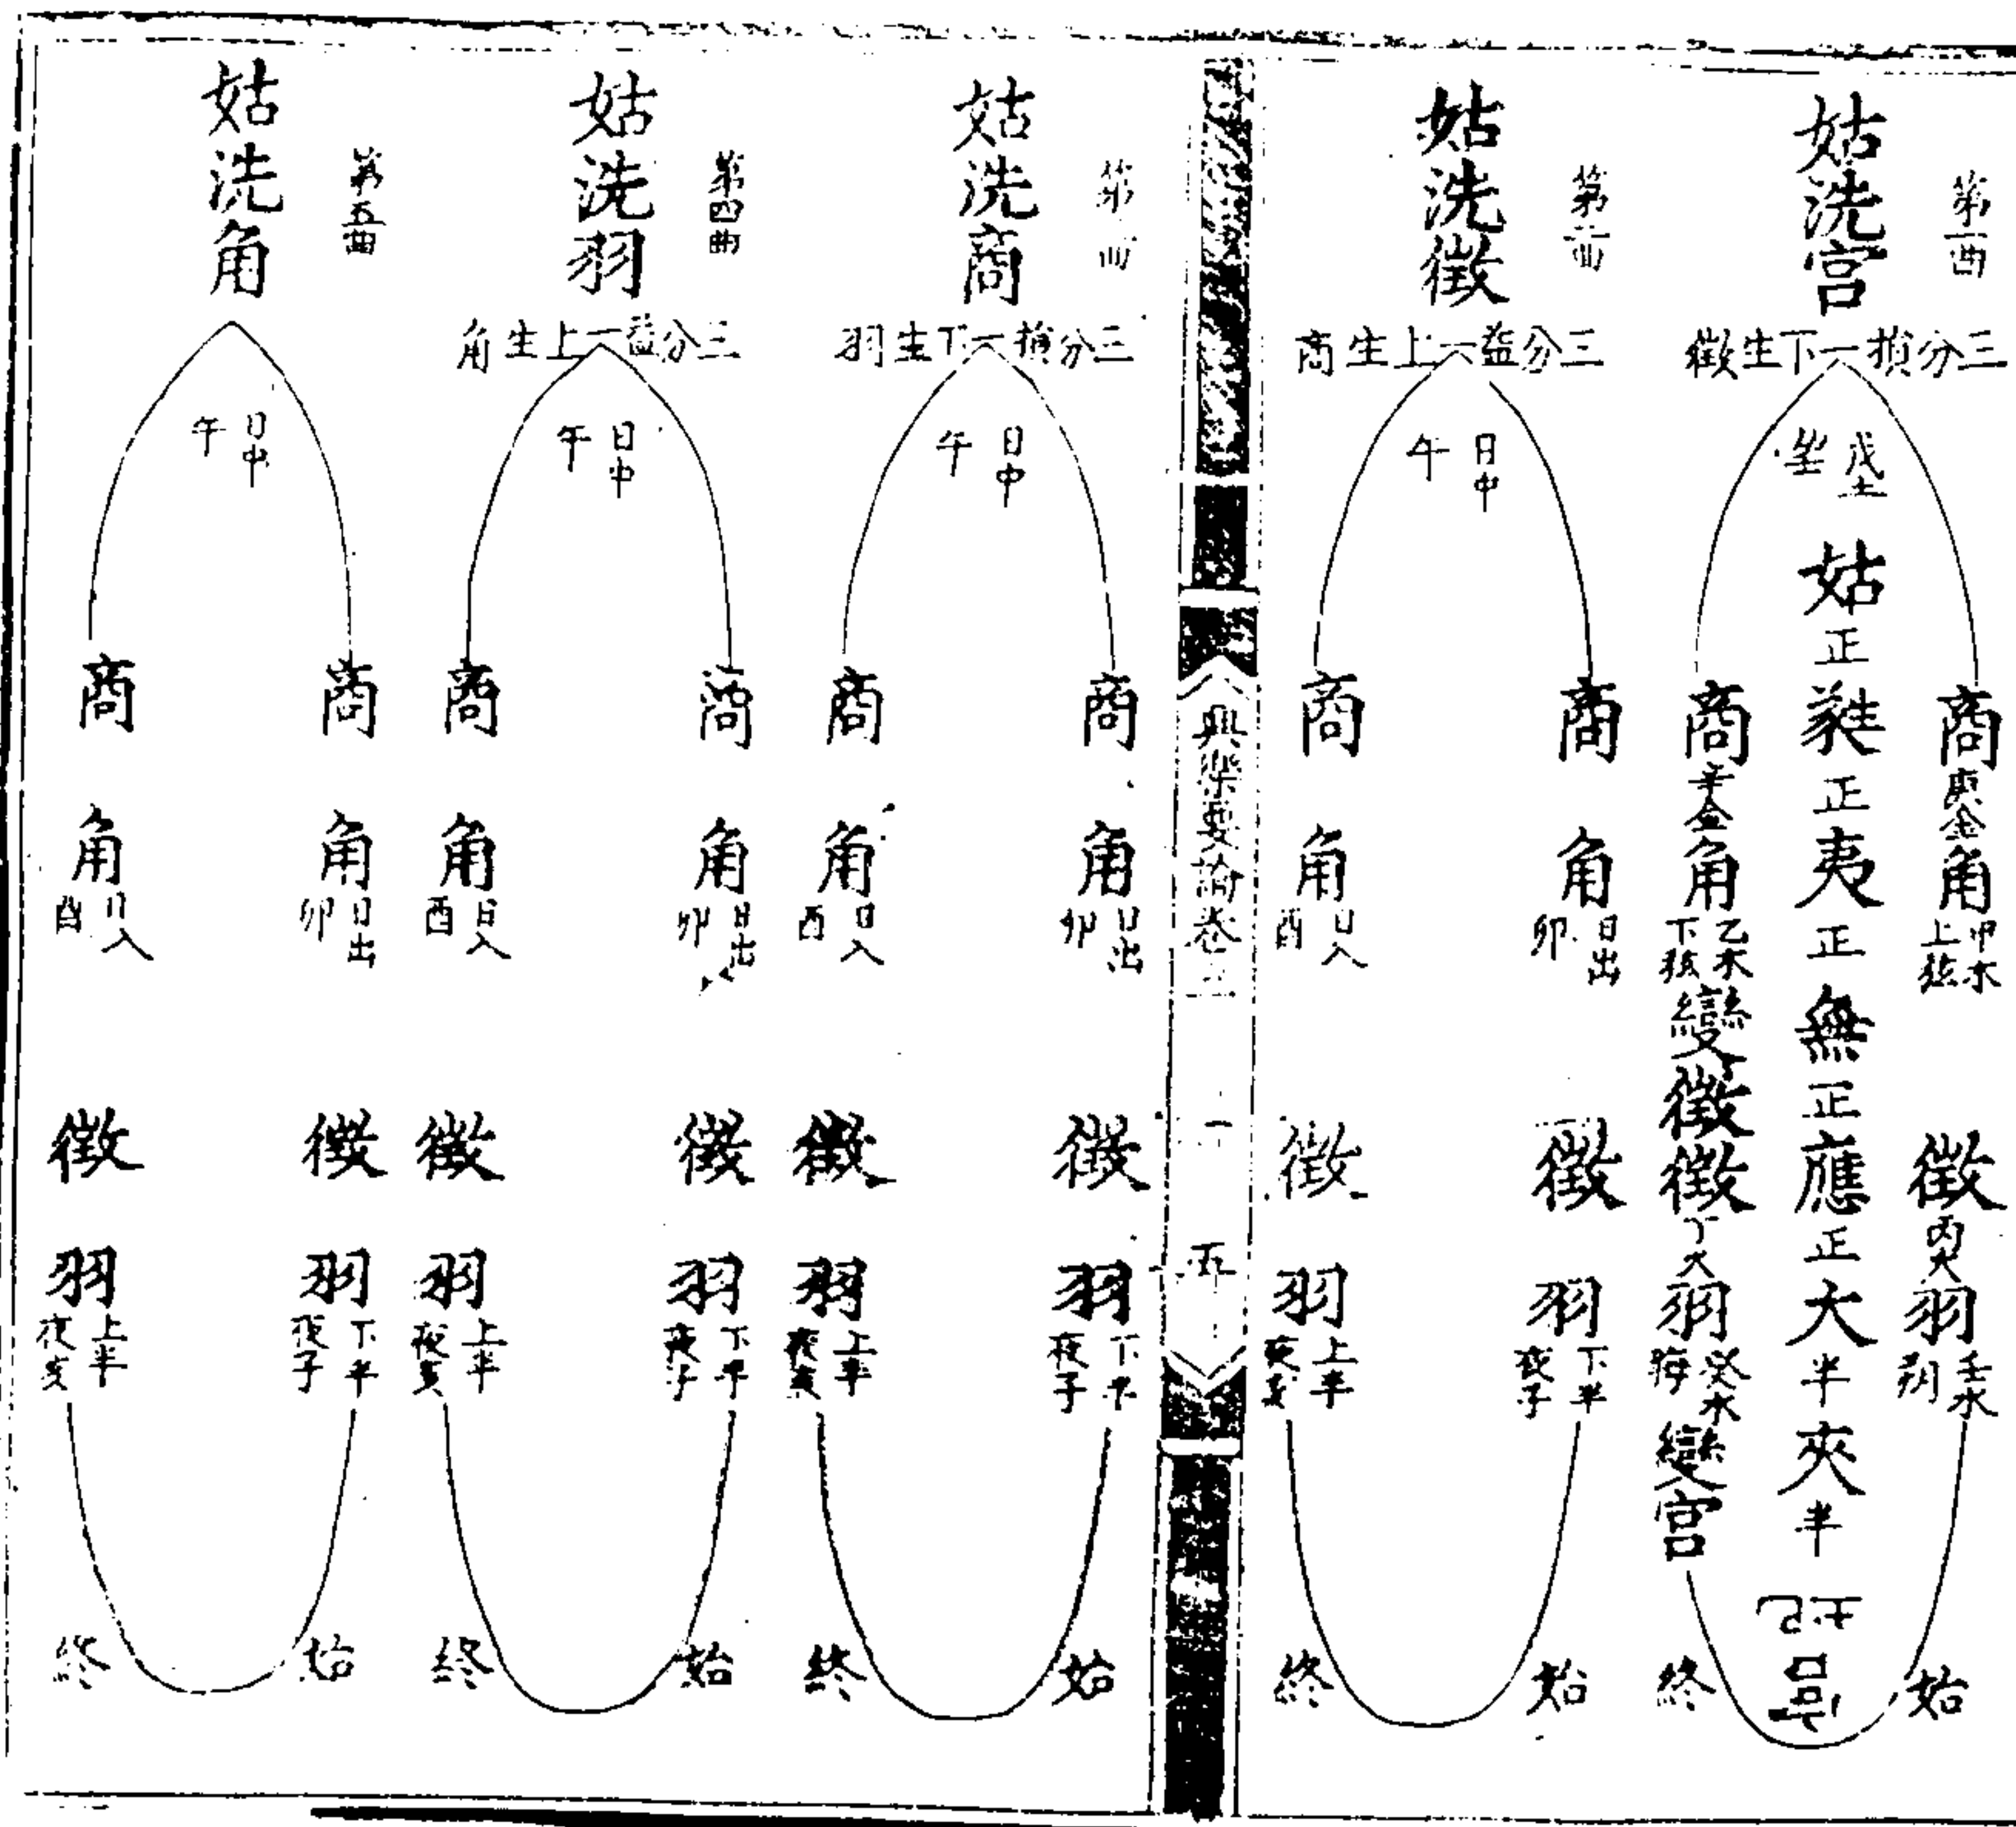 第一曲
姑洗宮
三分損一下生徵
戊土
商庚金角甲木上弦
徵丙火羽壬水朔
始
姑正蕤正夷正無正應正大半夾半
商辛金角乙木下弦變徵徵丁火羽癸水晦變宮
終
第二曲
姑洗徵
三分益一上生商
日中午
商
角日出卯
徵
羽下半夜子
始
商
角日入酉
徵
羽上半夜亥
終
興樂要論卷三
五
第 曲
姑洗商
三分損一下生羽
日中午
商
角日出卯
徵
羽下半夜子
始
商
角日入酉
徵
羽上半夜亥
終
第四曲
姑洗羽
三分益一上生角
日中午
商
角日出卯
徵
羽下半夜子
始
商
角日入酉
徵
羽上半夜亥
終
第五曲
姑洗角
日中午
商
角日出卯
徵
羽下半夜子
始
商
角日入酉
徵
羽上半夜亥
終